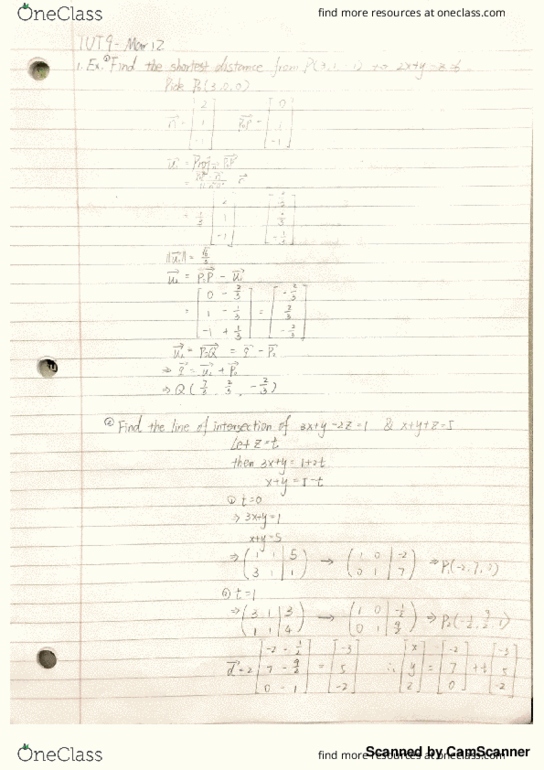 OneClass
find more resources at oneclass.com
TUT9 - Mar 12
1. Ex. ① Find the shortest distance from P(3, to 2x+y-z=6.
Pick P₀(3,0,0)
n = [2 1 -1] P₀P = [0 1 -1]
u₁ = proj P₀P
= 1/3 [2 1 -1]
||u₁|| = √6/3
u₂ = P₀P - u₁
= [0 - 2/3, 1 - 1/3, -1 + 1/3] = [-2/3 2/3 -2/3]
u₂ = P₀Q = q - P₀
⇒ q = u₂ + P₀
⇒ Q(7/3, 2/3, -2/3)
② Find the line of intersection of 3x+y-2z=1 & x+y+z=5
Let z=t
then 3x+y=1+2t
x+y=5-t
① t=0
⇒ 3x+y=1
x+y=5
⇒ (1 1 | 5, 3 1 | 1) → (1 0 | -2, 0 1 | 7) ⇒ P₁(-2, 7, 0)
② t=1
⇒ (3 1 | 3, 1 1 | 4) → (1 0 | -1/2, 0 1 | 9/2) ⇒ P₂(-1/2, 9/2, 1)
d = 2 [-2 - 1/2, 7 - 9/2, 0 - 1] = [-3 5 -2] ∴ [x y z] = [-2 7 0] + t [-3 5 -2]
OneClass
find more resources at oneclass.com
Scanned by CamScanner